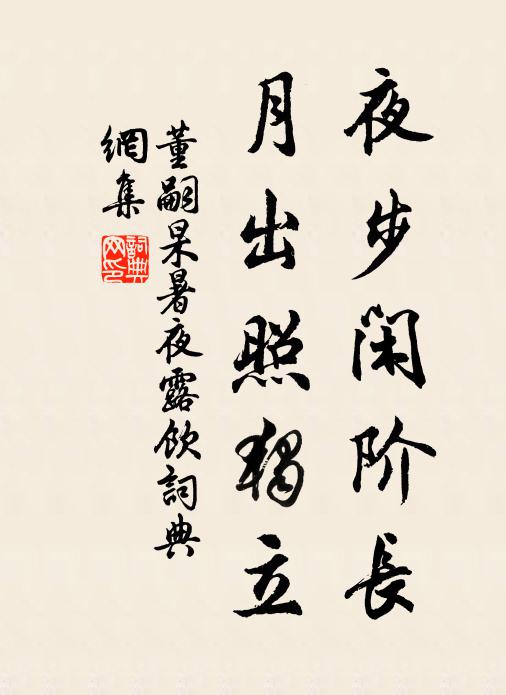 夜步闲阶長
月出照獨立
董嗣杲暑夜露飲詞典
網集
詞典
网印